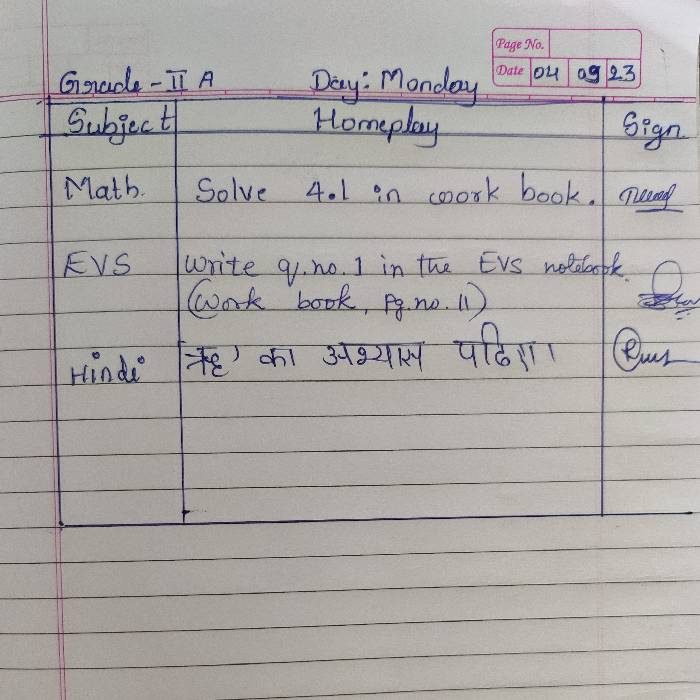 Page No.
Date 04 09 23
Grade - II A Day: Monday
Subject Homeplay Sign
Math. Solve 4.1 in work book.
EVS Write q.no.1 in the EVS notebook.
(Work book, Pg.no. 11)
Hindi का अभ्यास पढिए।